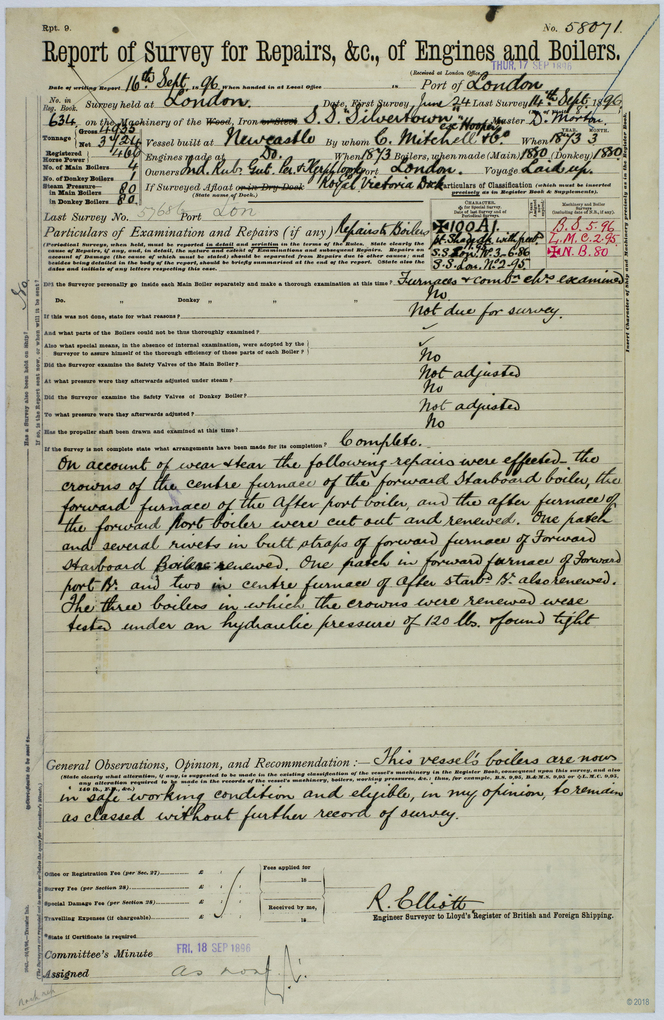 Rpt. 9.
No. 58071.
Report of Survey for Repairs, &c., of Engines and Boilers.
THUR. 17 SEP 1896
(Received at London Office
Date of writing Report 16th Sept. 1896 When handed in at Local Office 18 Port of London
No. in Reg. Book. Survey held at London. Date, First Survey June 24 Last Survey 14th Sept. 1896
634 on the Machinery of the Wood, Iron or Steel S.S. "Silvertown" ex Hooper Master D. Morton
Tonnage Gross 4935 Net 3424
Vessel built at Newcastle By whom C. Mitchell & Co. When 1873 3
YEAR. MONTH.
Registered Horse Power 400
Engines made at Do. When 1873 Boilers, when made (Main) 1880 (Donkey) 1880
No. of Main Boilers 4
No. of Donkey Boilers 1
Owners Port London. Voyage Laid up.
Steam Pressure in Main Boilers 80
in Donkey Boilers 80
If Surveyed Afloat or in Dry Dock Royal Victoria Dock
(State name of Dock.)
Particulars of Classification (which must be inserted precisely as in Register Book & Supplements).
Last Survey No. 57686 Port Lon
Particulars of Examination and Repairs (if any) Repairs to Boilers
CHARACTER.
100A1.
S.S. Lon. No. 3-6.86
S.S. Lon. No. 2-95
B.S. 5.96
L.M.C. 2.95
N.B. 80
(Periodical Surveys, when held, must be reported in detail and seriatim in the terms of the Rules. State clearly the cause of Repairs, if any, and, in detail, the nature and extent of Examinations and subsequent Repairs. Repairs on account of Damage (the cause of which must be stated) should be separated from Repairs due to other causes; and besides being detailed in the body of the report, should be briefly summarised at the end of the report. State also the dates and initials of any letters respecting this case.
Did the Surveyor personally go inside each Main Boiler separately and make a thorough examination at this time? Furnaces & combn. chrs. examined
Do. " Donkey " " " No
If this was not done, state for what reasons? Not due for survey.
And what parts of the Boilers could not be thoroughly examined?
Also what special means, in the absence of internal examination, were adopted by the
Surveyor to assure himself of the thorough efficiency of those parts of each Boiler?
Did the Surveyor examine the Safety Valves of the Main Boiler? No
At what pressure were they afterwards adjusted under steam? Not adjusted
Did the Surveyor examine the Safety Valves of Donkey Boiler? No
To what pressure were they afterwards adjusted? Not adjusted
Has the propeller shaft been drawn and examined at this time? No
If the Survey is not complete state what arrangements have been made for its completion? Complete.
On account of wear & tear the following repairs were effected - the
crowns of the centre furnace of the forward Starboard boiler, the
forward furnace of the After port boiler, and the after furnace of
the forward Port boiler were cut out and renewed. One patch
and several rivets in butt straps of forward furnace of Forward
Starboard Boiler renewed. One patch in forward furnace of Forward
port Br. and two in centre furnace of after starbd Br. also renewed.
The three boilers in which the crowns were renewed were
tested under an hydraulic pressure of 120 lbs. & found tight
General Observations, Opinion, and Recommendation :— This vessel's boilers are now
(State clearly what alteration, if any, is suggested to be made in the existing classification of the vessel's machinery in the Register Book, consequent upon this survey, and also any alteration required to be made in the records of the vessel's machinery, boilers, working pressures, &c.; thus, for example, B.S. 9,95, B.&M.S. 9,95 or L.M.C. 9,95, 140 lb., F.D., &c.)
in safe working condition and eligible, in my opinion, to remain
as classed without further record of survey.
Office or Registration Fee (per Sec. 27) £
Survey Fee (per Section 28) £
Special Damage Fee (per Section 28) £
Travelling Expenses (if chargeable) £
Fees applied for
18
Received by me,
18
R. Elliott
Engineer Surveyor to Lloyd's Register of British and Foreign Shipping.
*State if Certificate is required
Committee's Minute FRI. 18 SEP 1896
Assigned as now
Insert Character of Ship and Machinery precisely as in the Register Book.
Has a Survey also been held on Ship?
If so, is the Report sent now, or when will it be sent?
© 2018